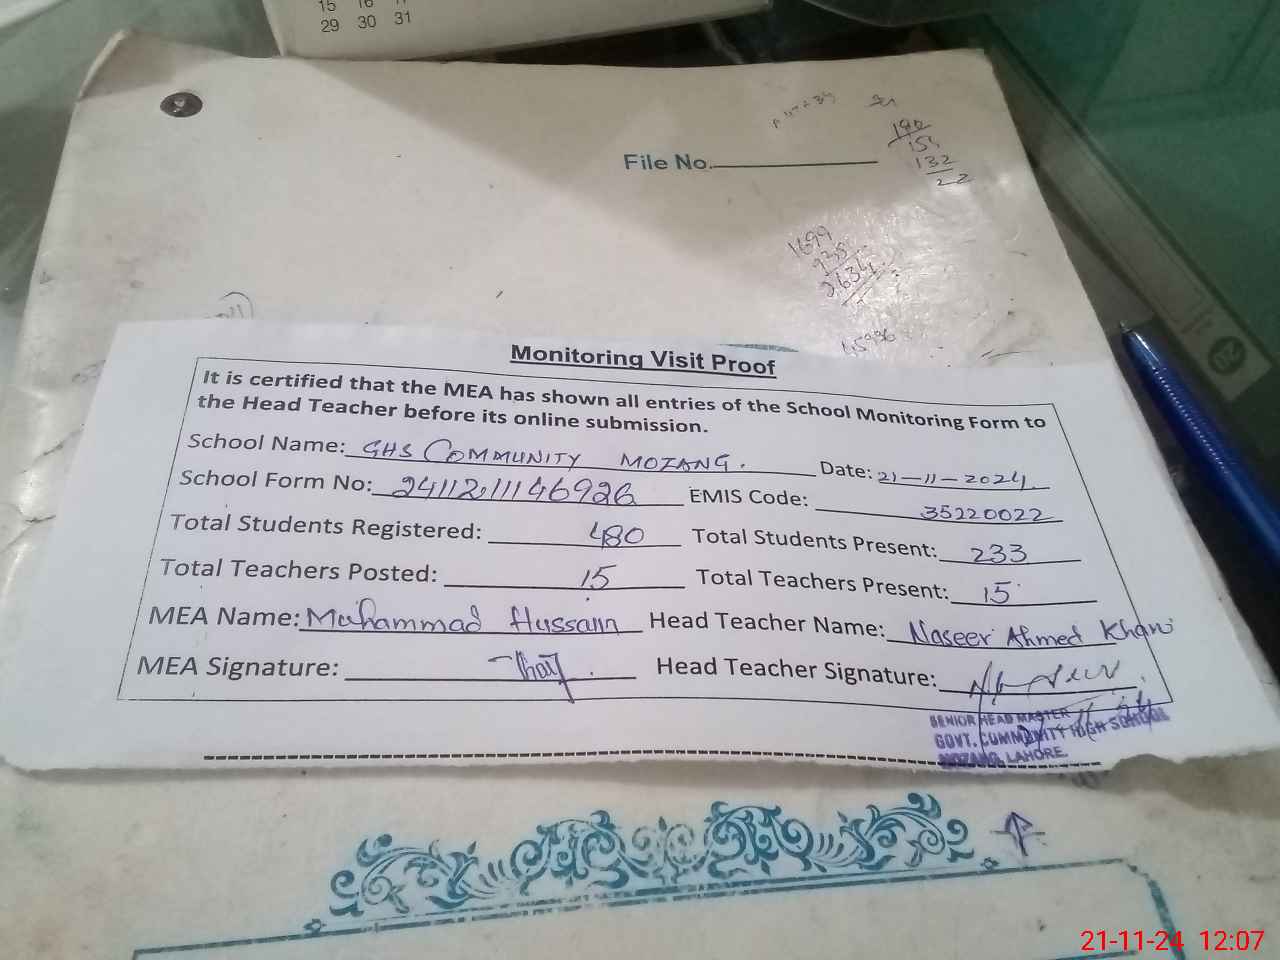 15 16 17
29 30 31
File No.
190
154
132
22
1699
935
2634
Monitoring Visit Proof
It is certified that the MEA has shown all entries of the School Monitoring Form to
the Head Teacher before its online submission.
School Name: GHS COMMUNITY MOZANG. Date: 21-11-2024
School Form No: 241121146926 EMIS Code: 35220022
Total Students Registered: 480 Total Students Present: 233
Total Teachers Posted: 15 Total Teachers Present: 15
MEA Name: Muhammad Hussain Head Teacher Name: Naseer Ahmed Khan
MEA Signature: Head Teacher Signature:
SENIOR HEAD MASTER
GOVT. COMMUNITY HIGH SCHOOL
MOZANG, LAHORE.
21-11-24 12:07